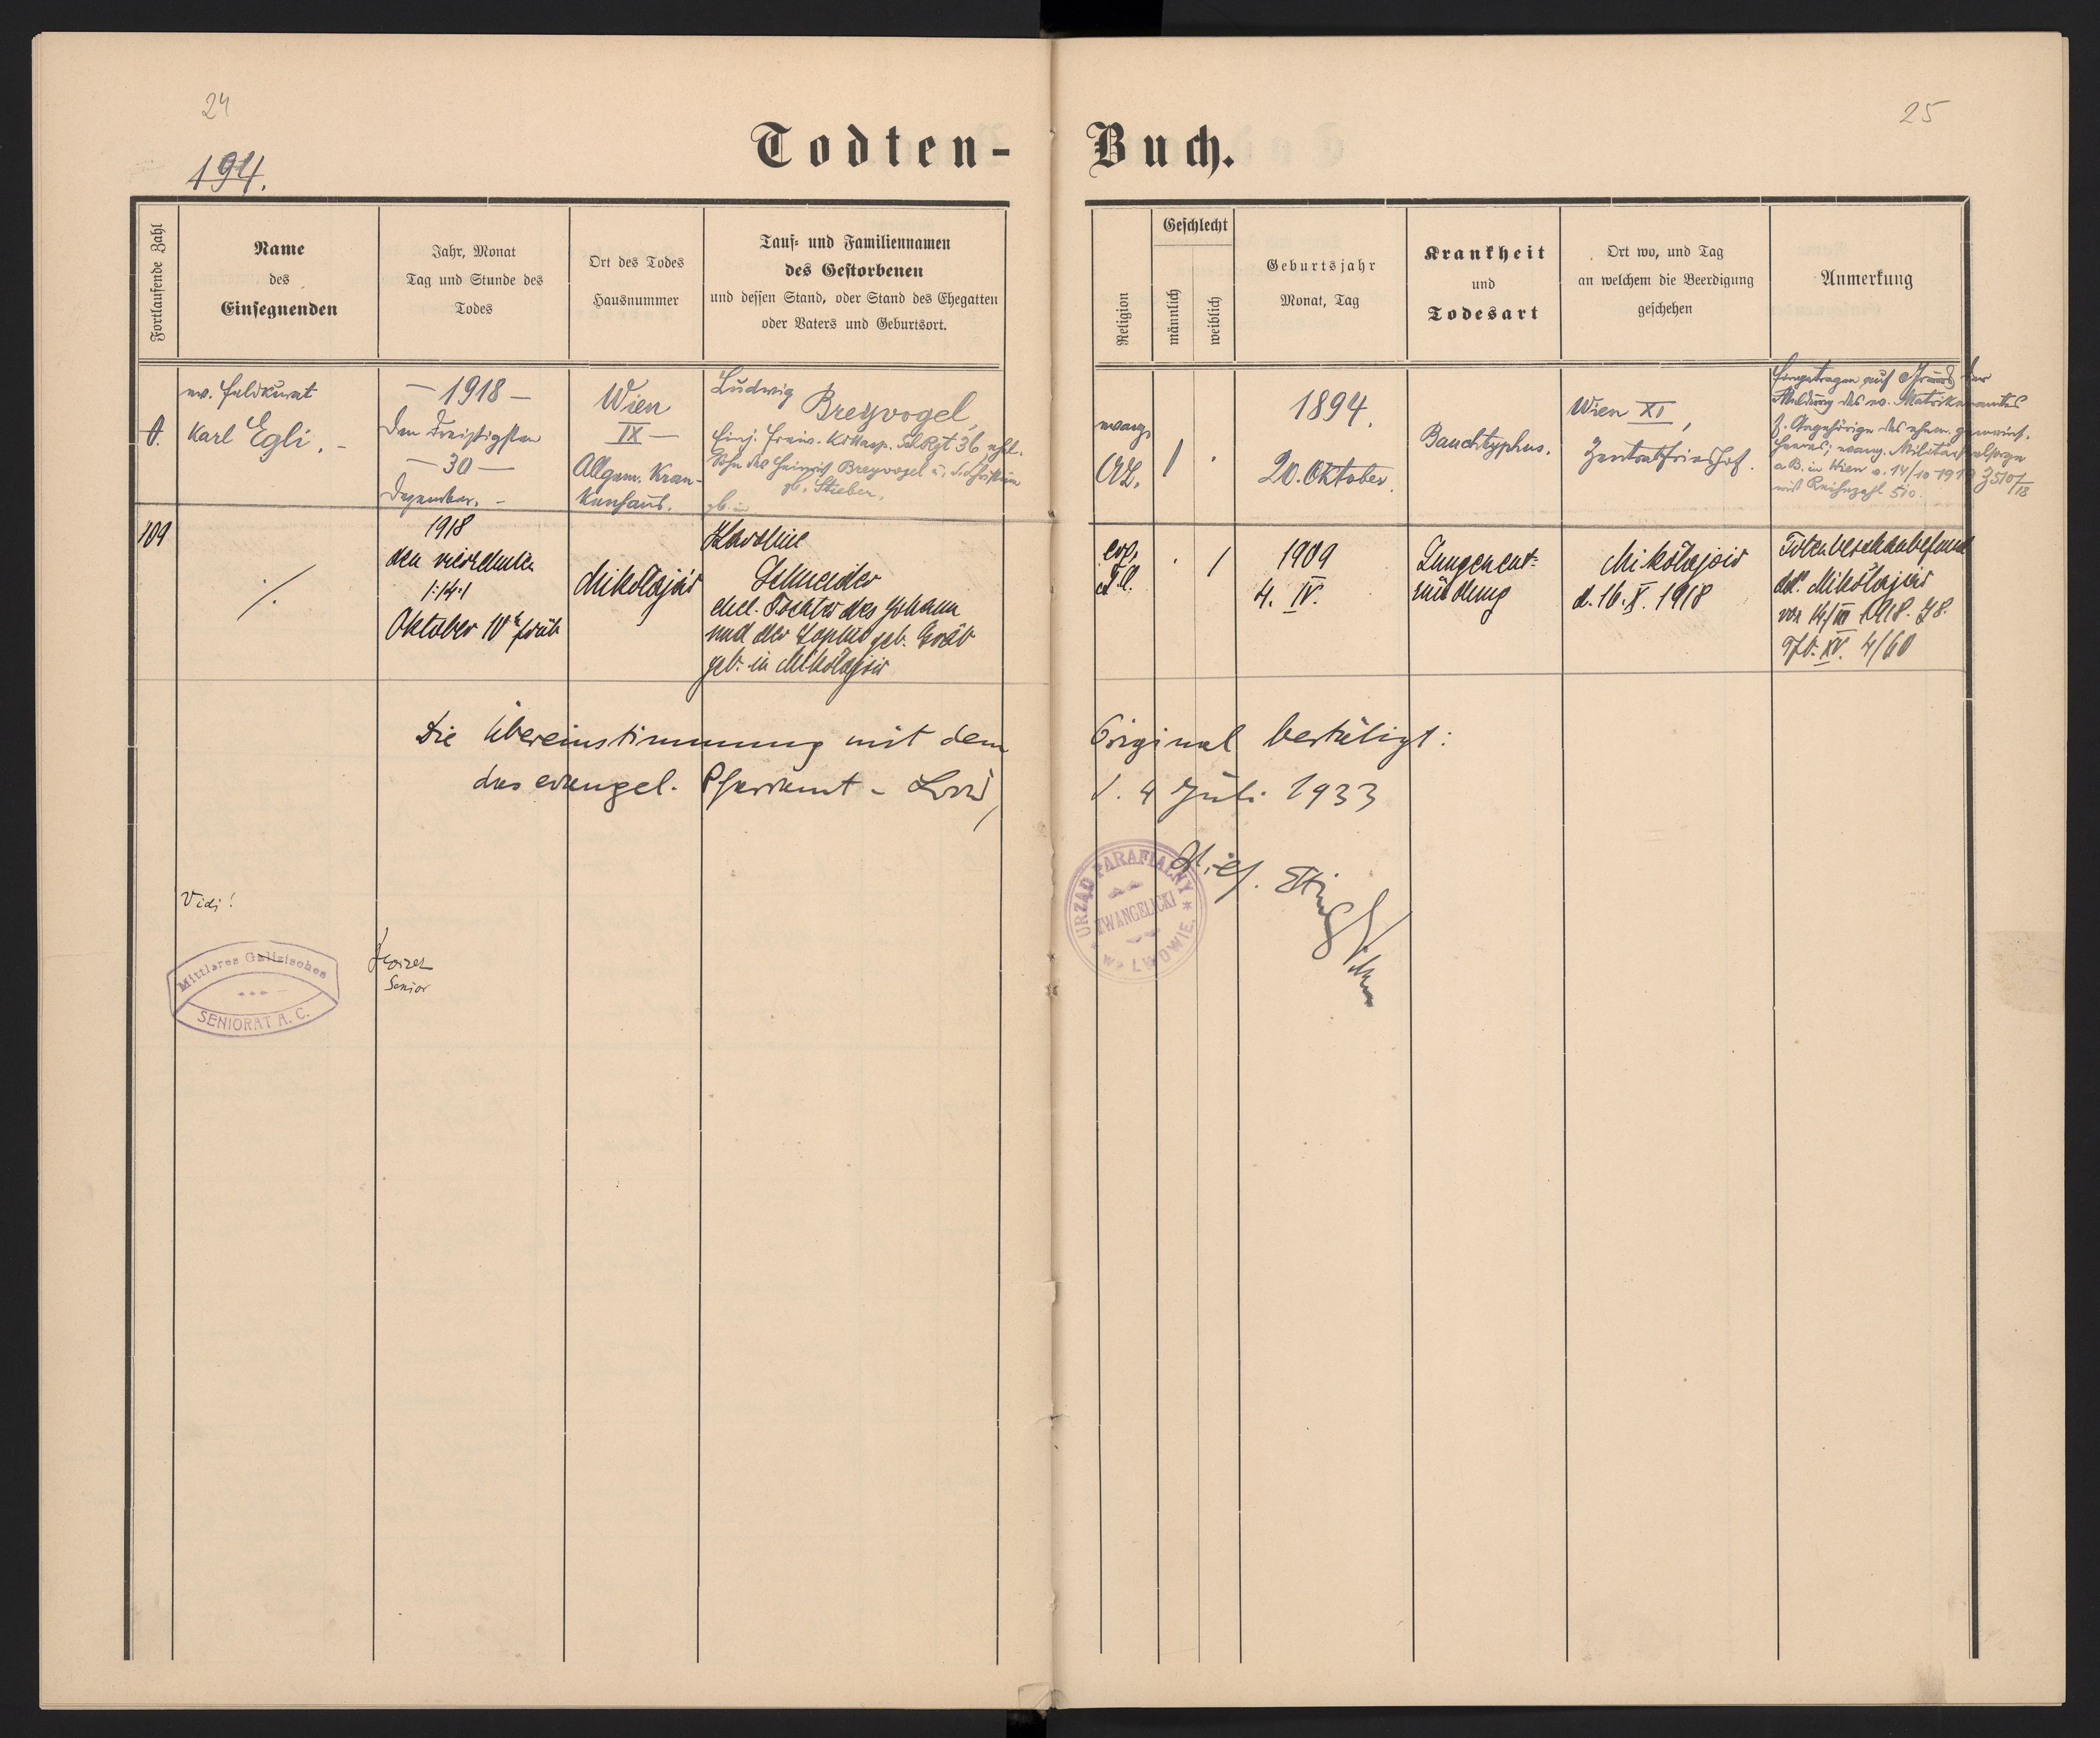 24
25
Todten-Buch.
194.
Fortlaufende Zahl
Name
des
Einsegnenden
Jahr, Monat
Tag und Stunde des
Todes
Ort des Todes
Hausnummer
Tauf- und Familiennamen
des Gestorbenen
und dessen Stand, oder Stand des Ehegatten
oder Vaters und Geburtsort.
Religion
Geschlecht
männlich
weiblich
Geburtsjahr
Monat, Tag
Krankheit
und
Todesart
Ort wo, und Tag
an welchem die Beerdigung
geschehen
Anmerkung
0.
ev. Feldkurat
Karl Egli. -
— 1918 —
den dreißigsten
— 30 —
Dezember. -
Wien
IX —
Allgem. Kran-
kenhaus.
Ludwig
Breyvogel,
Einj. Freiw. 36, ehl.
Sohn des Heinrich Breyvogel u. d. Christine
gb. Stieber.
gb. in
evang.
A.B.
1
1894.
20. Oktober.
Bauchtyphus.
Wien XI,
Zentralfriedhof.
Eingetragen auf Grund der
Meldung des ev. Matrikenamtes
f. Angehörige des ehem. gemeins.
Heeres; evang. Militärseelsorge
a.B. in Wien v. 14/10 1919 Z 510/18
mit Reihezahl 510.
109
./.
1918
den vierzehnten
1:14:1
Oktober 10h früh
Mikołajów
Karoline
Schneider
ehel. Tochter des Johann
und der Sophie geb. Gräb
geb. in Mikołajów
ev.
A.
1
1909
4. IV.
Lungenent-
zündung
Mikołajów
d. 16. X. 1918
Totenbeschaubefund
dd° Mikołajów
1918. Z 8.
XV. 4/60
Die Übereinstimmung mit dem Original bestätigt:
das evangel. Pfarramt - Lwów, d. 4 Juli 1933
URZĄD PARAFIALNY
EWANGELICKI
WE LWOWIE.
Vidi!
Mittleres Galizisches
SENIORAT A. C.
Senior